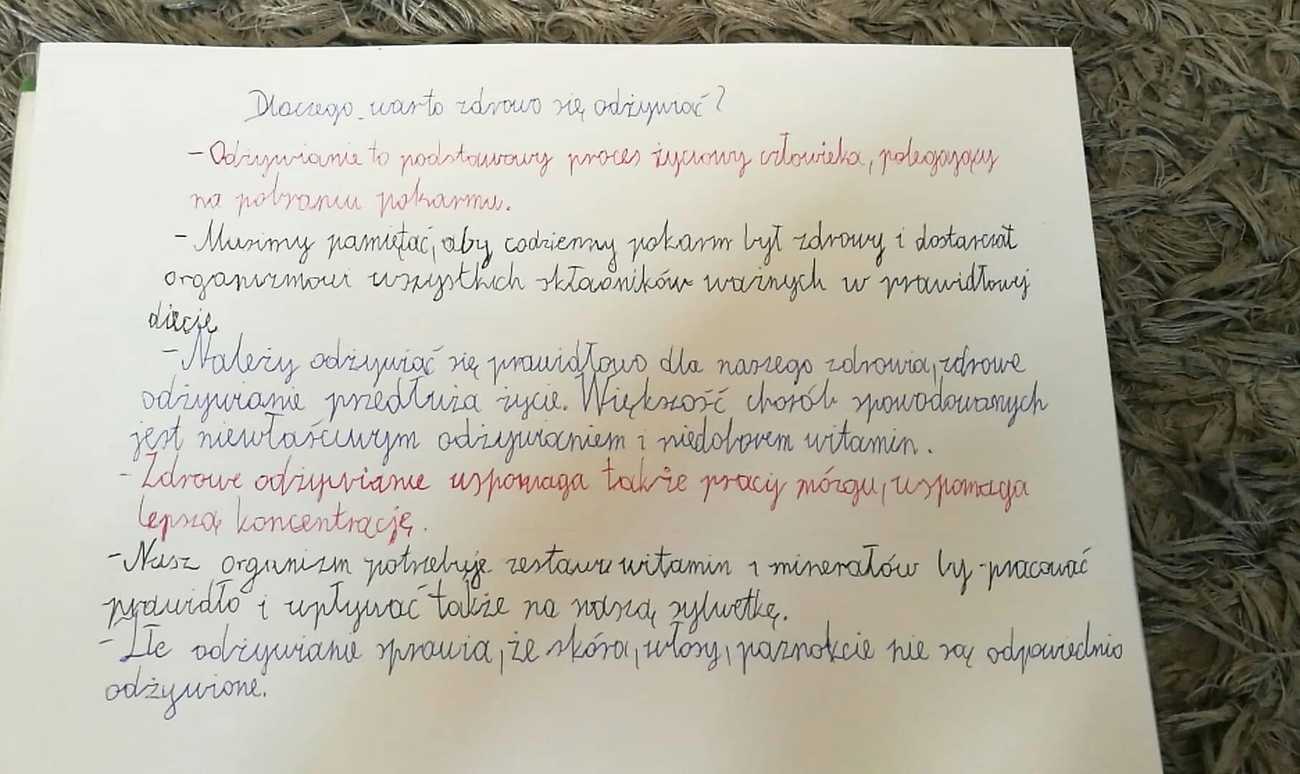 Dlaczego warto zdrowo się odżywiać?
- Odżywianie to podstawowy proces życiowy człowieka, polegający
na pobraniu pokarmu.
- Musimy pamiętać, aby codzienny pokarm był zdrowy i dostarczał
organizmowi wszystkich składników ważnych w prawidłowej
diecie
- Należy odżywiać się prawidłowo dla naszego zdrowia, zdrowe
odżywianie przedłuża życie. Większość chorób spowodowanych
jest niewłaściwym odżywianiem i niedoborem witamin.
- Zdrowe odżywianie wspomaga także pracy mózgu, wspomaga
lepszą koncentrację.
- Nasz organizm potrzebuje zestawu witamin i minerałów by pracować
prawidło i wpływać także na naszą sylwetkę.
- Złe odżywianie sprawia, że skóra, włosy, paznokcie nie są odpowiednio
odżywione.